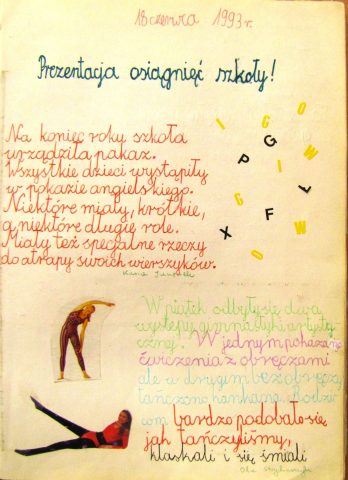 18 czerwca 1993 r.
Prezentacja osiągnięć szkoły!
Na koniec roku szkoła
urządziła pakaz.
Wszystkie dzieci wystąpiły
w pokazie angielskiego.
Niektóre miały, krótkie,
a niektóre długie role.
Miały też specjalne rzeczy
do atrapy swoich wierszyków.
Kasia
G
O
P
W
L
F
X
W piątek odbyły się dwa
występy gimnastyki artysty-
cznej. W jednym pokazano
ćwiczenia z obręczami
ale w drugim bez obręczy
tańczono kankana. Rodzi-
com bardzo podobało się
jak tańczyliśmy,
klaskali i się śmiali
Ola